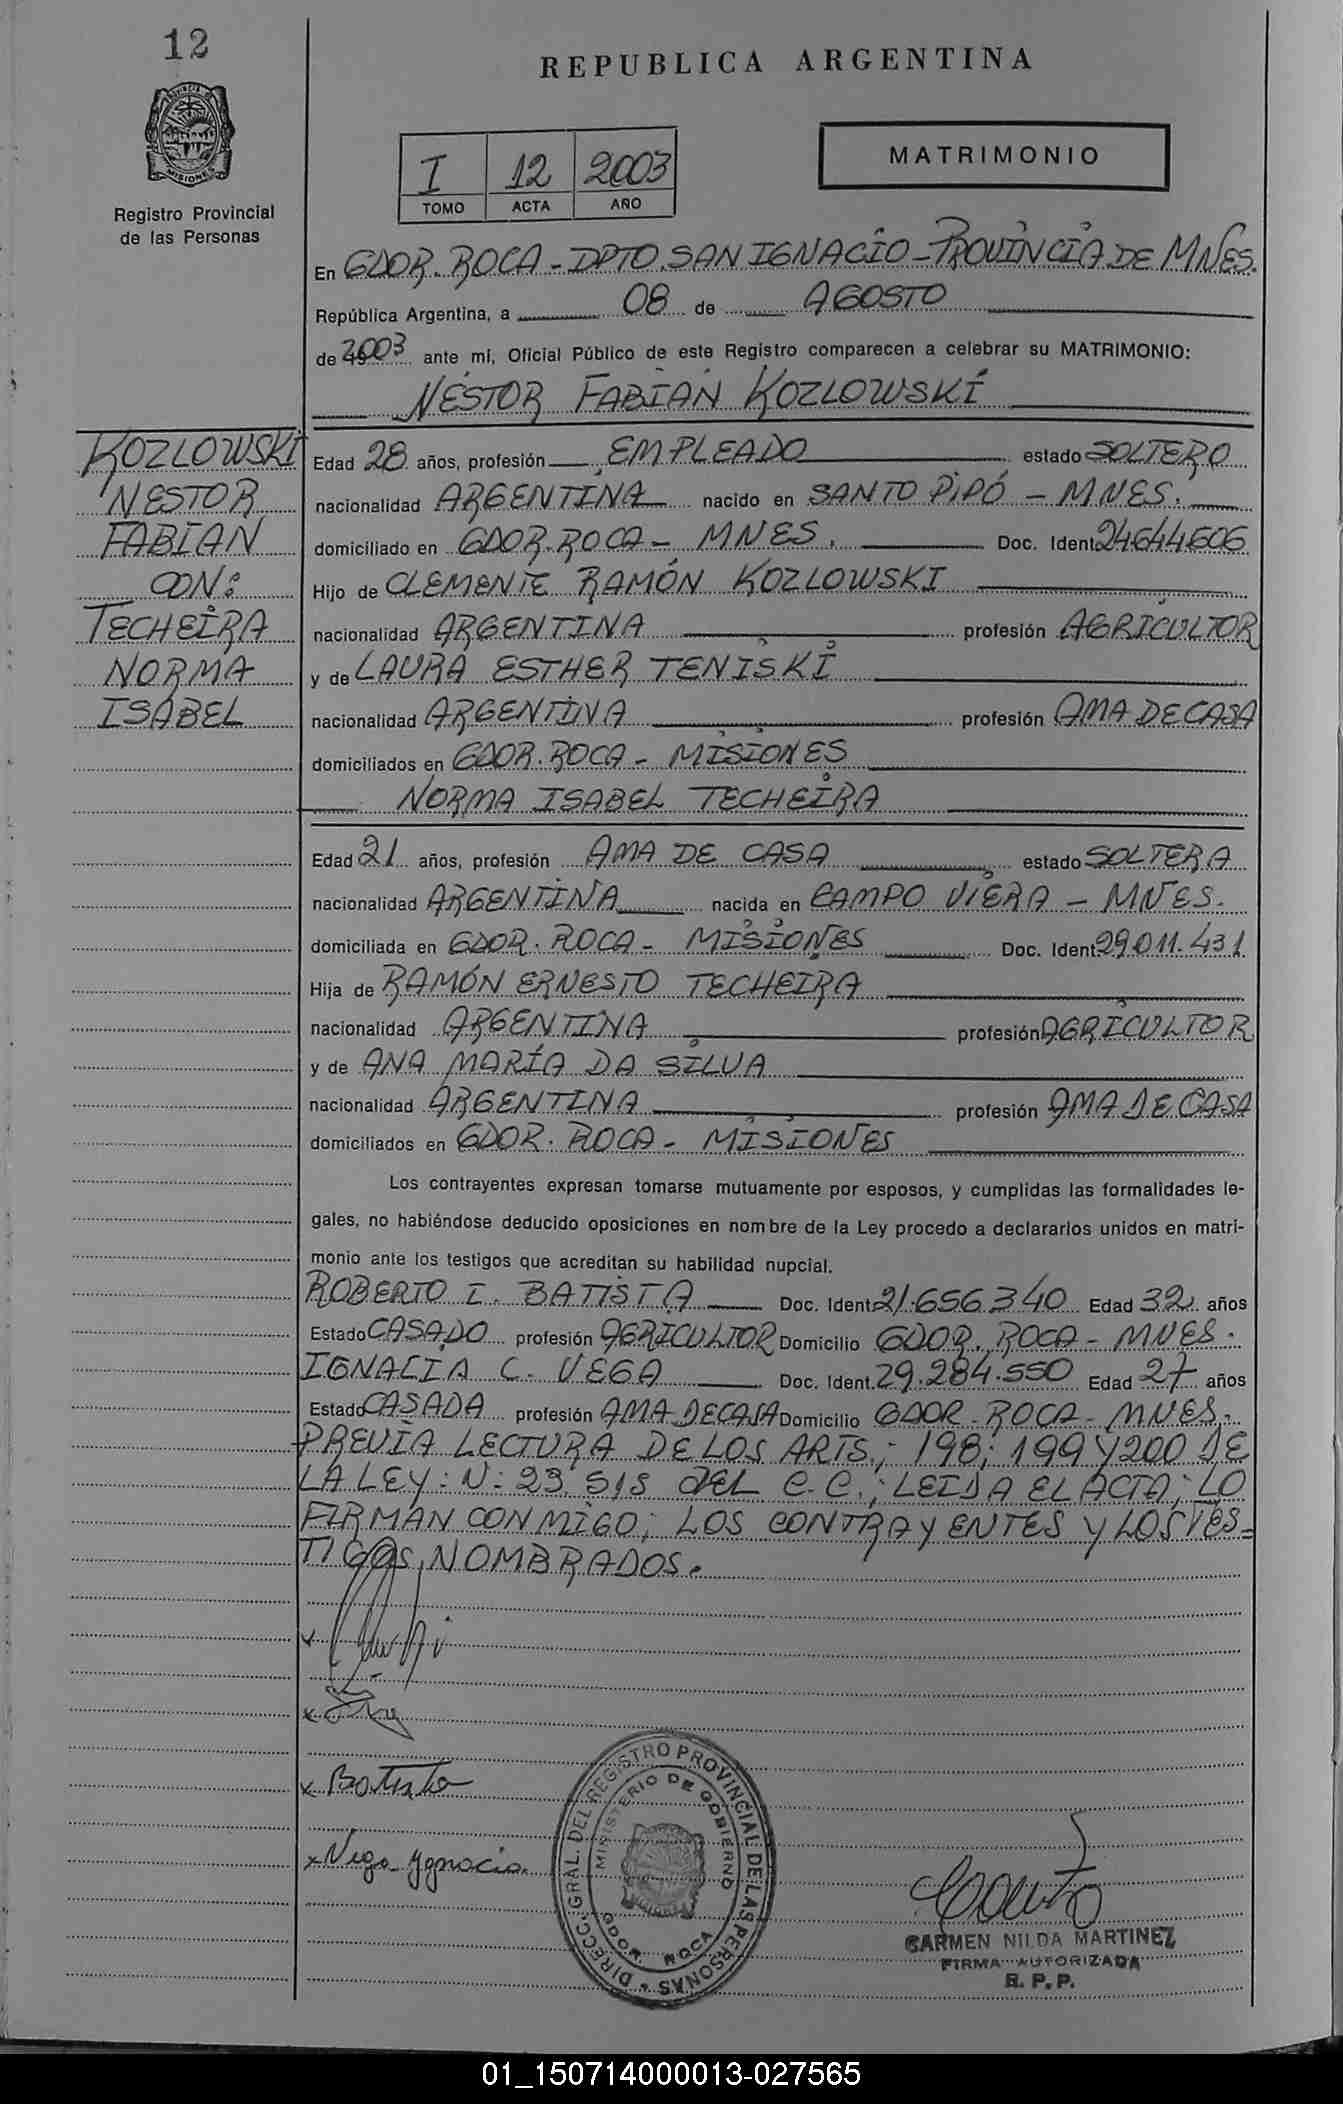 12
REPUBLICA ARGENTINA
MATRIMONIO
I 12 2003
TOMO ACTA AÑO
MISIONES
Registro Provincial
de las Personas
En GDOR. ROCA - DPTO SAN IGNACIO - PROVINCIA DE MNES.
República Argentina, a 08 de AGOSTO
de 2003 ante mí, Oficial Público de este Registro comparecen a celebrar su MATRIMONIO:
NESTOR FABIAN KOZLOWSKI
KOZLOWSKI
NESTOR
FABIAN
CON:
TECHEIRA
NORMA
ISABEL
Edad 28 años, profesión EMPLEADO estado SOLTERO
nacionalidad ARGENTINA nacido en SANTO PIPÓ - MNES.
domiciliado en GDOR. ROCA - MNES. Doc. Ident. 24644606
Hijo de CLEMENTE RAMÓN KOZLOWSKI
nacionalidad ARGENTINA profesión AGRICULTOR
y de LAURA ESTHER TENISKI
nacionalidad ARGENTINA profesión AMA DE CASA
domiciliados en GDOR. ROCA - MISIONES
NORMA ISABEL TECHEIRA
Edad 21 años, profesión AMA DE CASA estado SOLTERA
nacionalidad ARGENTINA nacida en CAMPO VIERA - MNES.
domiciliada en GDOR. ROCA - MISIONES Doc. Ident. 29.011.431
Hija de RAMÓN ERNESTO TECHEIRA
nacionalidad ARGENTINA profesión AGRICULTOR
y de ANA MARÍA DA SILVA
nacionalidad ARGENTINA profesión AMA DE CASA
domiciliados en GDOR. ROCA - MISIONES
Los contrayentes expresan tomarse mutuamente por esposos, y cumplidas las formalidades le-
gales, no habiéndose deducido oposiciones en nombre de la Ley procedo a declararlos unidos en matri-
monio ante los testigos que acreditan su habilidad nupcial.
ROBERTO I. BATISTA Doc. Ident. 21.656.340 Edad 32 años
Estado CASADO profesión AGRICULTOR Domicilio GDOR. ROCA - MNES.
IGNACIA C. VEGA Doc. Ident. 29.284.550 Edad 27 años
Estado CASADA profesión AMA DE CASA Domicilio GDOR. ROCA - MNES.
PREVIA LECTURA DE LOS ARTS.; 198; 199 Y 200 DE
LA LEY: N: 23.515 DEL C.C.; LEIDA EL ACTA; LO
FIRMAN CONMIGO; LOS CONTRAYENTES Y LOS TES-
TIGOS NOMBRADOS.
x Batista
x Vega Ygnacia
DIRECC. GRAL. DEL REGISTRO PROVINCIAL DE LAS PERSONAS
MINISTERIO DE GOBIERNO
GDOR. ROCA
CARMEN NILDA MARTINEZ
FIRMA AUTORIZADA
R. P. P.
01_150714000013-027565